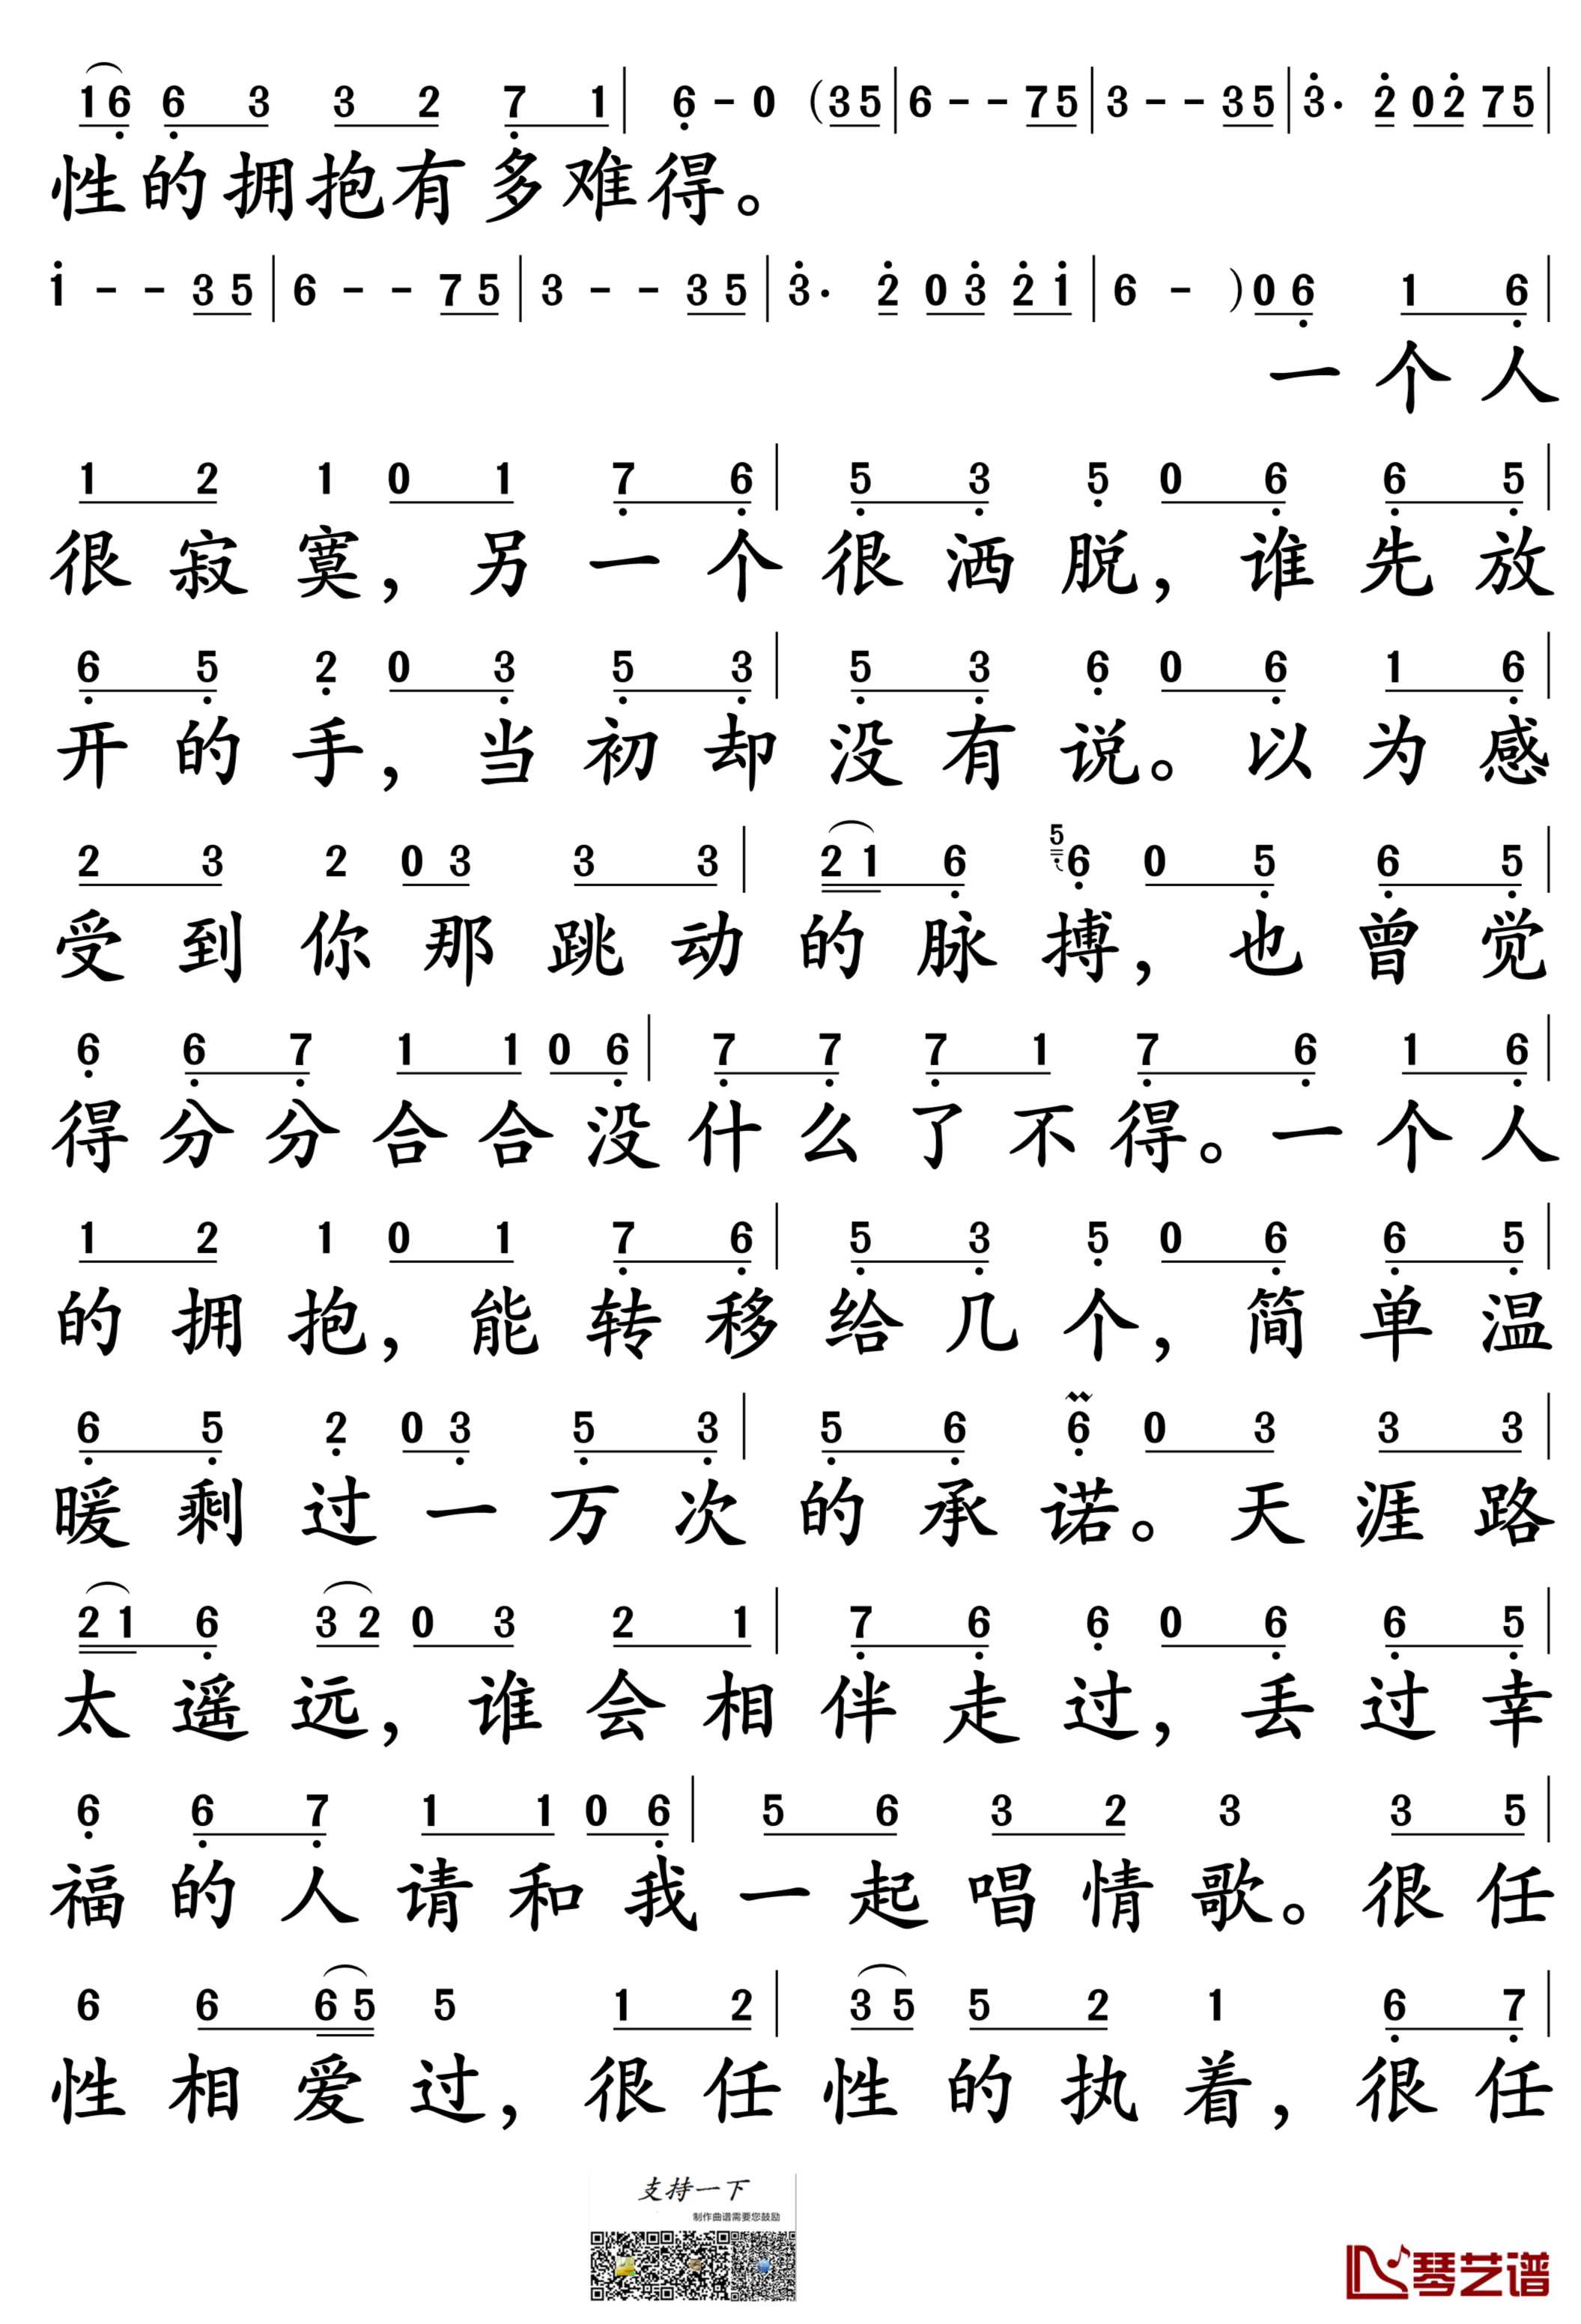 16 6 3 3 2 7 1 | 6 - 0 (35 | 6 - - 75 | 3 - - 35 | 3· 2 02 75 |
性的拥抱有多难得。
1 - - 35 | 6 - - 75 | 3 - - 35 | 3· 2 03 21 | 6 - )06 1 6 |
一个人
1 2 1 0 1 7 6 | 5 3 5 0 6 6 5 |
很寂寞,另一个很洒脱,谁先放
6 5 2 0 3 5 3 | 5 3 6 0 6 1 6 |
开的手,当初却没有说。以为感
2 3 2 0 3 3 3 | 21 6 5 6 0 5 6 5 |
受到你那跳动的脉搏,也曾觉
6 6 7 1 1 0 6 | 7 7 7 1 7 6 1 6 |
得分分合合没什么了不得。一个人
1 2 1 0 1 7 6 | 5 3 5 0 6 6 5 |
的拥抱,能转移给几个,简单温
6 5 2 0 3 5 3 | 5 6 6 0 3 3 3 |
暖剩过一万次的承诺。天涯路
21 6 32 0 3 2 1 | 7 6 6 0 6 6 5 |
太遥远,谁会相伴走过,丢过幸
6 6 7 1 1 0 6 | 5 6 3 2 3 3 5 |
福的人请和我一起唱情歌。很任
6 6 65 5 1 2 | 35 5 2 1 6 7 |
性相爱过,很任性的执着,很任
支持一下
制作曲谱需要您鼓励
琴艺谱